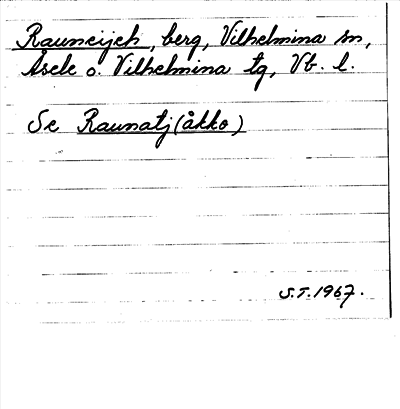 Rauncijeh, berg, Vilhelmina sn,
Åsele o. Vilhelmina tg, Vb. l.
Se Raunatj(åkko)
S.T. 1967.